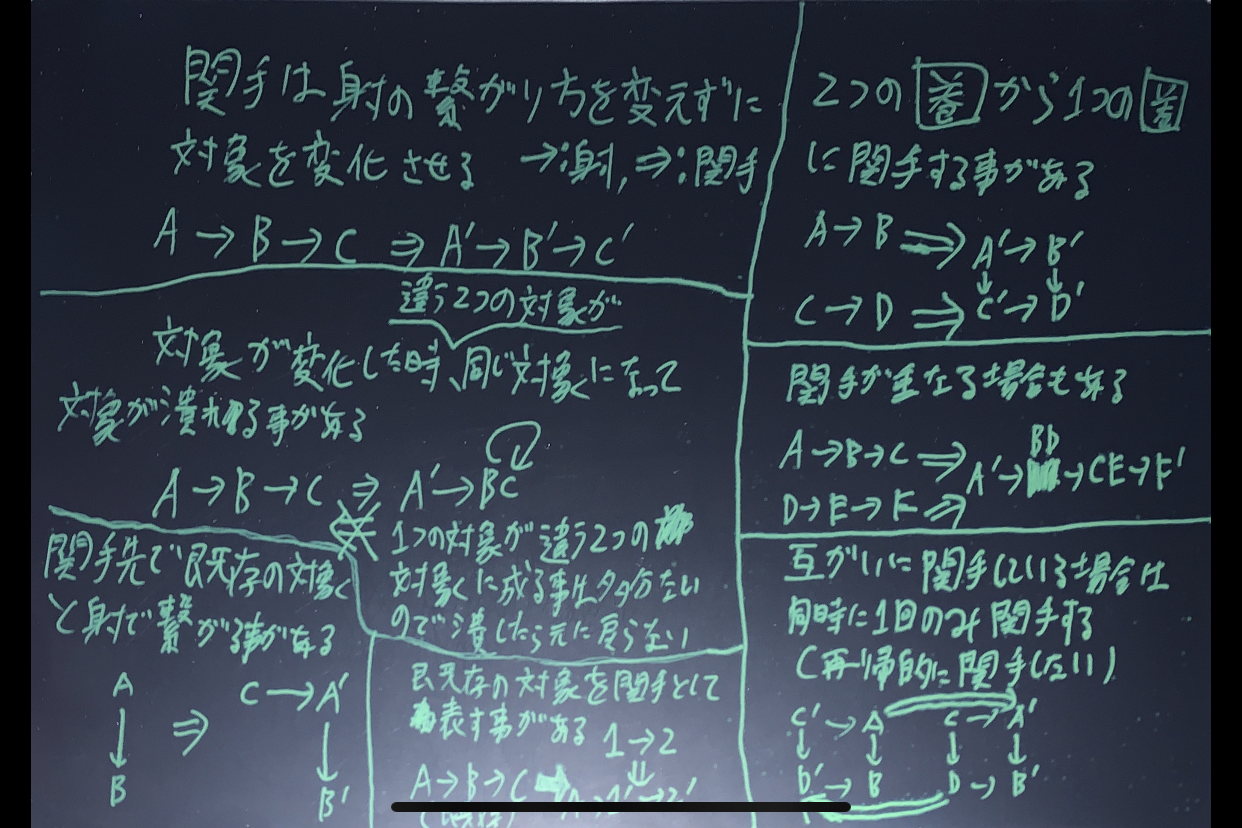 関手は射の繋がり方を変えずに
対象を変化させる →:射, ⇒:関手
A → B → C ⇒ A' → B' → C'
違う2つの対象が
対象が変化した時、同じ対象になって
対象が潰れる事がある
A → B → C ⇒ A' → BC
1つの対象が違う2つの
対象に成る事は多分ない
ので潰したら元に戻らない
関手先で既存の対象
と射で繋がる事がある
A ⇒ C → A'
↓ ↓
B B'
既存の対象を関手として
表す事がある 1 → 2
⇓
A → B → C
2つの圏から1つの圏
に関手する事がある
A → B ⇒ A' → B'
↓ ↓
C → D ⇒ C' → D'
関手が重なる場合もある
BD
A → B → C ⇒ A' → → CE → F'
D → E → F ⇒
互がいに関手している場合は
同時に1回のみ関手する
(再帰的に関手しない)
C' → A C → A'
↓ ↓ ↓ ↓
D' → B D → B'